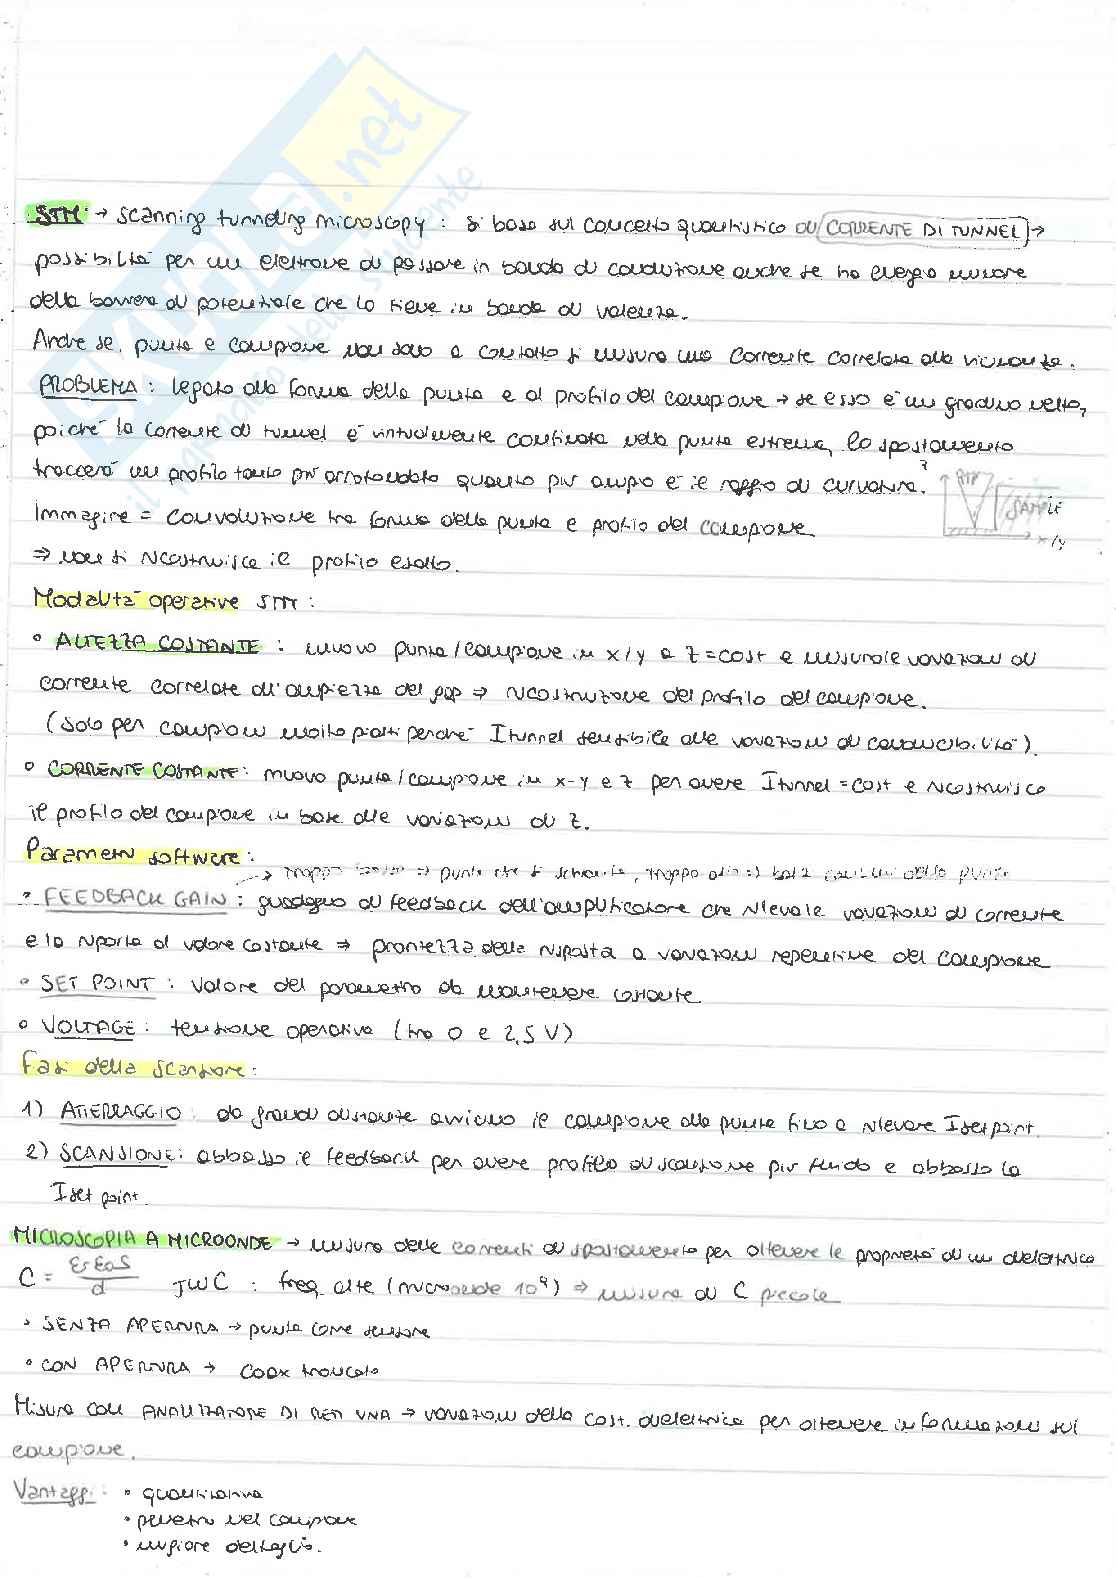 STM → scanning tunneling microscopy : si basa sul concetto quantistico di CORRENTE DI TUNNEL →
possibilità per un elettrone di passare in banda di conduzione anche se ha energia minore
della barriera di potenziale che lo tiene in banda di valenza.
Anche se punta e campione non sono a contatto si misura una corrente correlata alla vicinanza.
PROBLEMA : legato alla forma della punta e al profilo del campione → se esso è un gradino netto,
poiché la corrente di tunnel è virtualmente confinata nella punta estrema, lo spostamento
traccerà un profilo tanto più arrotondato quanto più ampio è il raggio di curvatura.
z
TIP
SAMPLE
x/y
Immagine = convoluzione tra forma della punta e profilo del campione
⇒ non si ricostruisce il profilo esatto.
Modalità operative STM :
• ALTEZZA COSTANTE : muovo punta/campione in x/y a z=cost e misuro le variazioni di
corrente correlate all'ampiezza del gap ⇒ ricostruzione del profilo del campione.
(solo per campioni molto piatti perché Itunnel sensibile alle variazioni di conducibilità).
• CORRENTE COSTANTE : muovo punta/campione in x-y e z per avere Itunnel = cost e ricostruisco
il profilo del campione in base alle variazioni di z.
Parametri software :
→ troppo basso ⇒ punta che si schianta, troppo alto ⇒ della punta
• FEEDBACK GAIN : guadagno di feedback dell'amplificatore che rileva le variazioni di corrente
e la riporta al valore costante ⇒ prontezza della risposta a variazioni repentine del campione
• SET POINT : valore del parametro da mantenere costante
• VOLTAGE : tensione operativa (tra 0 e 2,5 V)
Fasi della scansione :
1) ATTERRAGGIO : da grandi distanze avvicino il campione alla punta fino a rilevare Iset point.
2) SCANSIONE : abbasso il feedback per avere profilo di scansione più fluido e abbasso la
Iset point.
MICROSCOPIA A MICROONDE → misura delle correnti di spostamento per ottenere le proprietà di un dielettrico
C = εrε0S/d JWC : freq alte (microonde 10⁹) ⇒ misura di C piccole
• SENZA APERTURA → punta come sensore
• CON APERTURA → coax troncato
Misura con ANALIZZATORE DI RETI VNA → variazioni della cost. dielettrica per ottenere informazioni sul
campione.
Vantaggi : • quantitativa
• penetra nel campione
• migliore dettaglio.